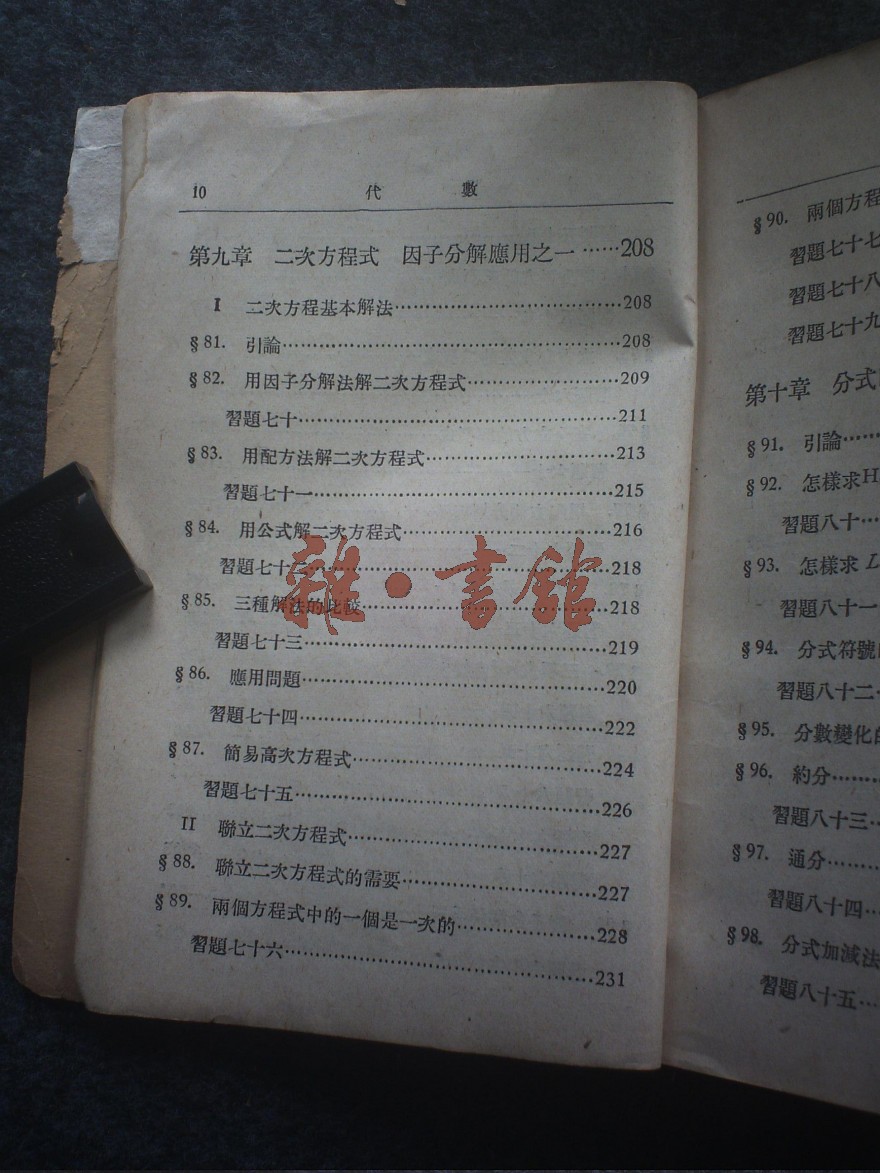 10 代數
第九章 二次方程式 因子分解應用之一……208
I 二次方程基本解法……208
§81. 引論……208
§82. 用因子分解法解二次方程式……209
習題七十……211
§83. 用配方法解二次方程式……213
習題七十一……215
§84. 用公式解二次方程式……216
習題七十二……218
§85. 三種解法的比較……218
習題七十三……219
§86. 應用問題……220
習題七十四……222
§87. 簡易高次方程式……224
習題七十五……226
II 聯立二次方程式……227
§88. 聯立二次方程式的需要……227
§89. 兩個方程式中的一個是一次的……228
習題七十六……231
雜·書館
§90. 兩個方程
習題七十七
習題七十八
習題七十九
第十章 分式
§91. 引論……
§92. 怎樣求H
習題八十…
§93. 怎樣求 L
習題八十一
§94. 分式符號
習題八十二
§95. 分數變化
§96. 約分……
習題八十三…
§97. 通分……
習題八十四…
§98. 分式加減法
習題八十五…